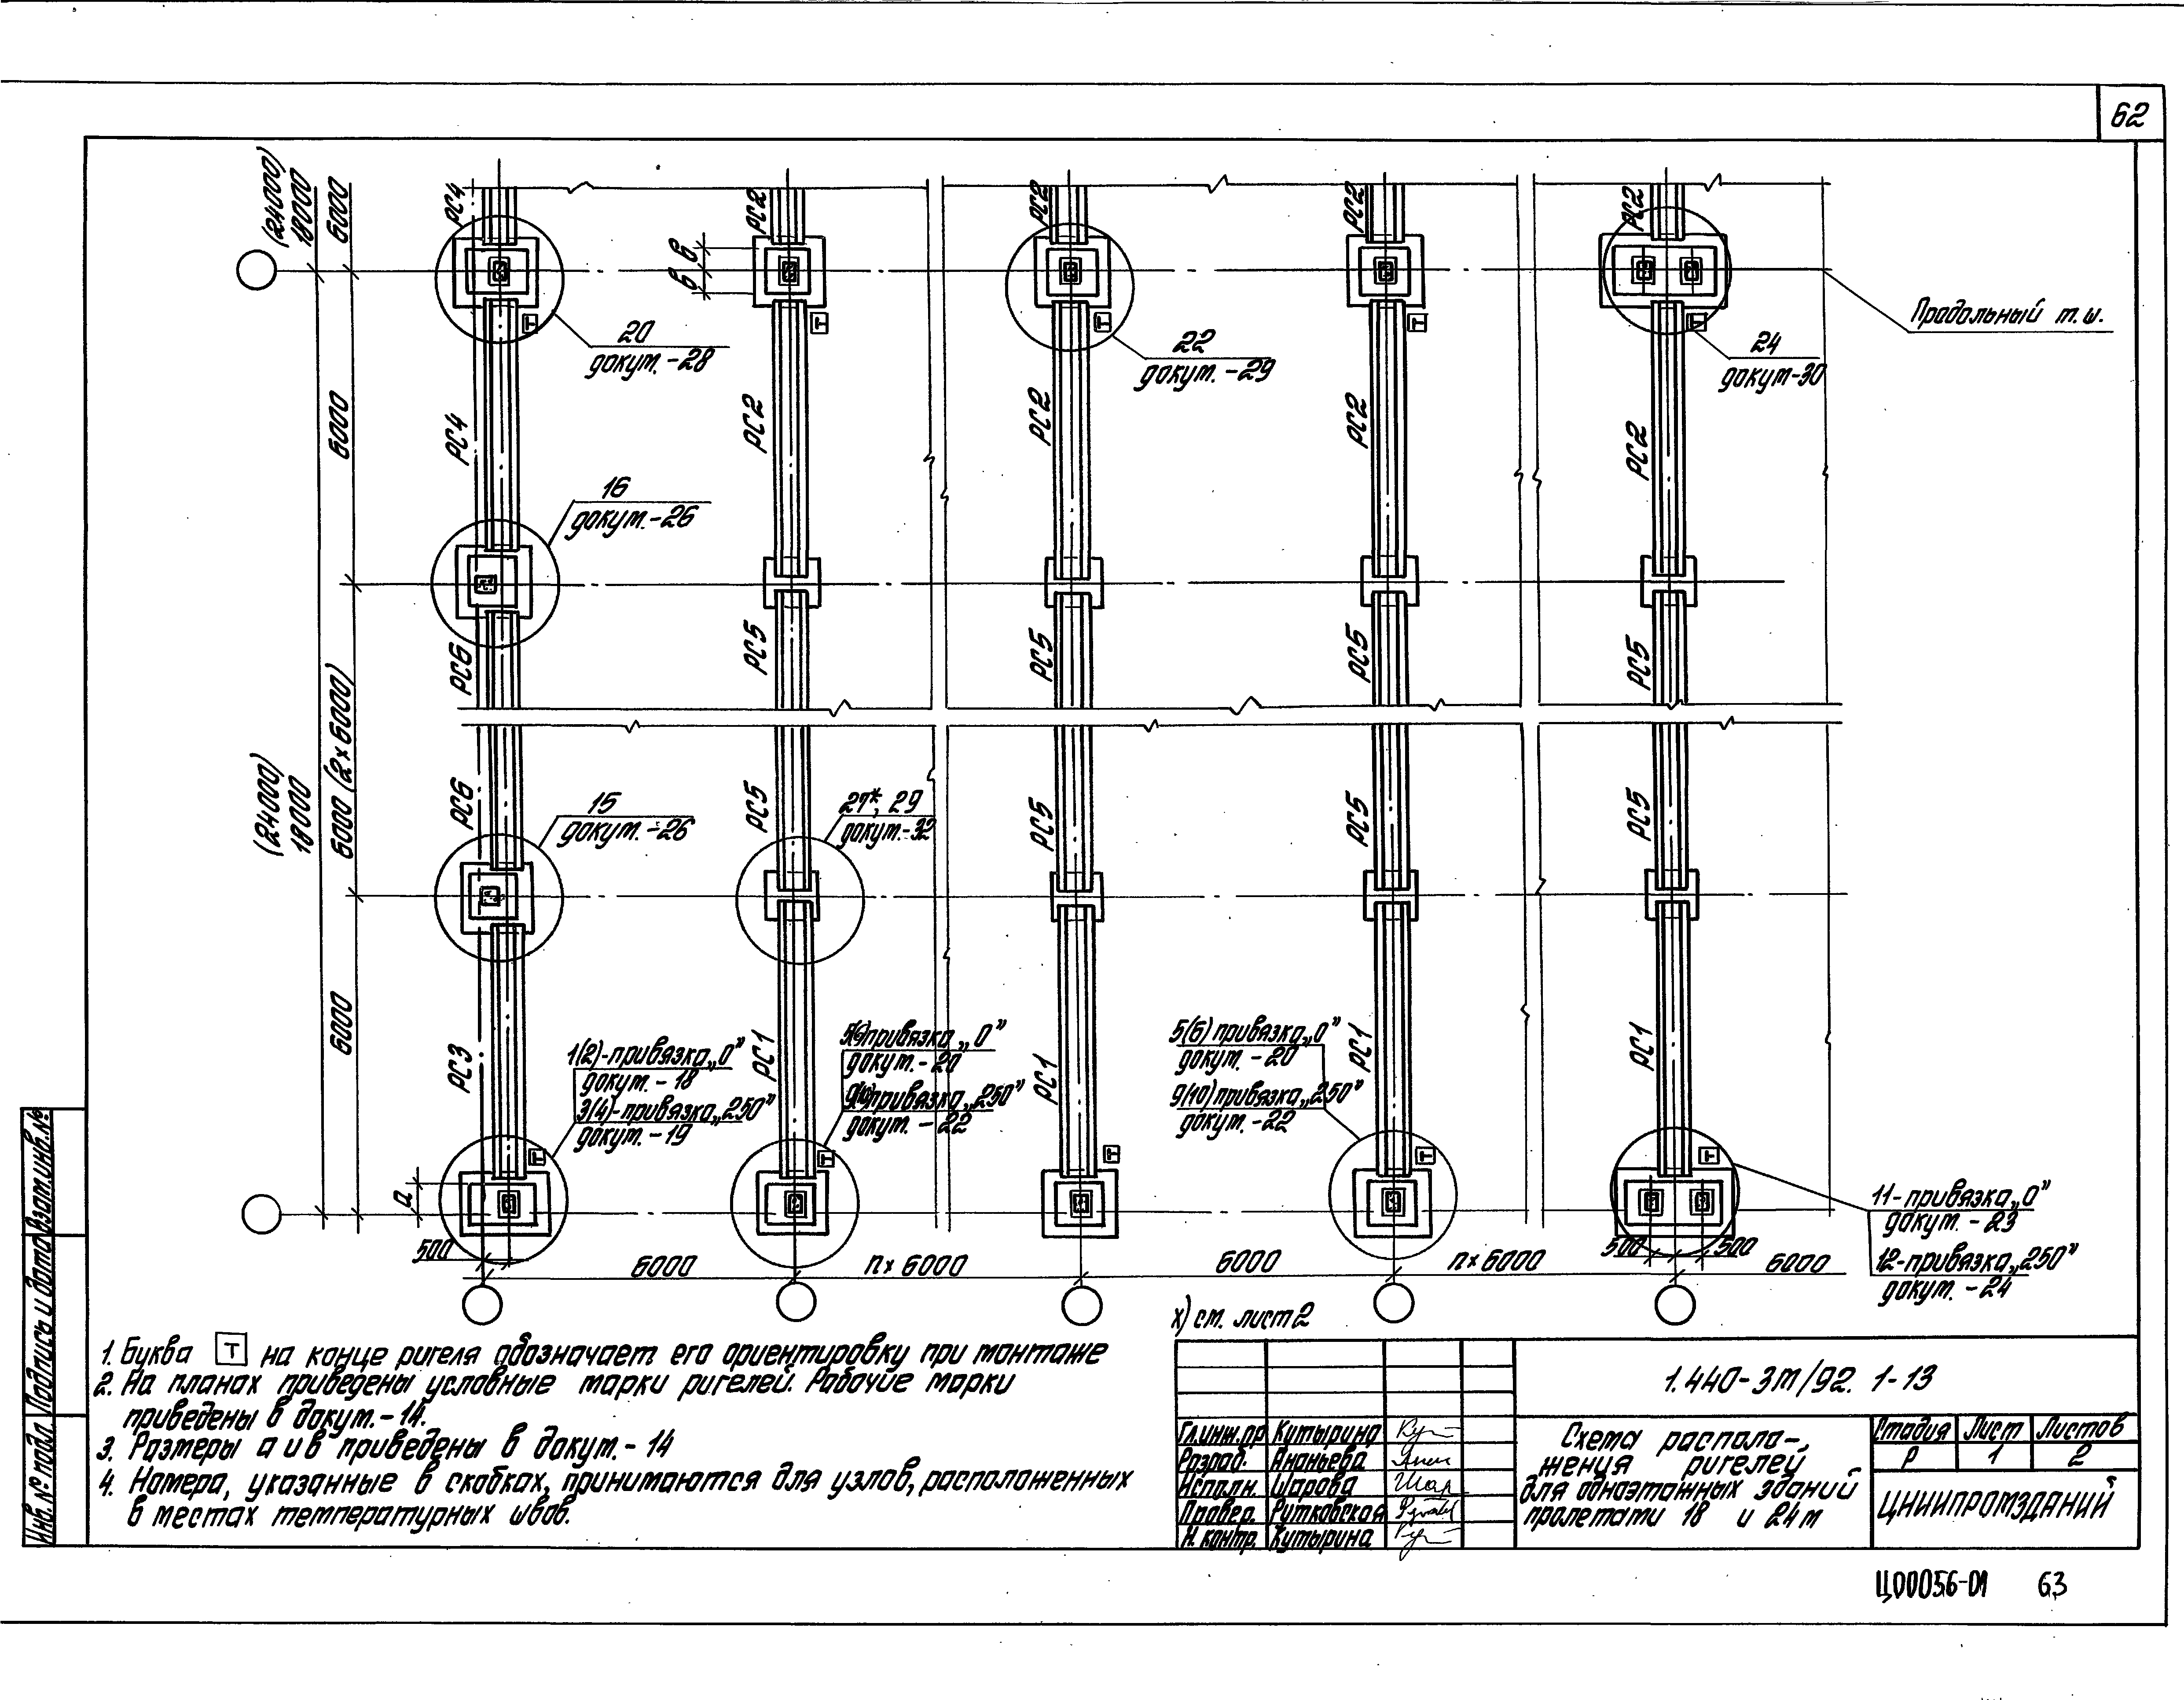 62
(24000)
18000
6000
РС4
РС2
РС2
РС2
РС2
в
в
Т
Т
Т
Т
Т
Продольный т.ш.
20
докум.-28
22
докум.-29
24
докум-30
6000
РС4
РС2
РС2
РС2
РС2
16
докум.-26
РС6
РС5
РС5
РС5
РС5
(24000)
18000
6000 (2×6000)
РС6
РС5
РС5
РС5
РС5
15
докум.-26
27*, 29
докум.-32
6000
РС3
РС1
РС1
РС1
РС1
1(2)-привязка „0"
докум. - 18
3(4)-привязка „250"
докум. - 19
5(6) привязка „0"
докум. - 20
9(10) привязка „250"
докум. - 22
5(6) привязка „0"
докум. - 20
9(10) привязка „250"
докум. -22
Т
Т
Т
Т
Т
а
11-привязка „0"
докум. - 23
12-привязка „250"
докум. - 24
500
6000
n×6000
6000
n×6000
500
500
6000
х) см. лист 2
1. Буква Т на конце ригеля обозначает его ориентировку при монтаже
2. На планах приведены условные марки ригелей. Рабочие марки
приведены в докум.-14.
3. Размеры а и в приведены в докум.- 14
4. Номера, указанные в скобках, принимаются для узлов, расположенных
в местах температурных швов.
1.440-3м/92. 1-13
Гл.инж.пр Кутырина
Разраб. Ананьева
Исполн. Шарова
Провер. Рутковская
Н. контр. Кутырина
Схема располо-
жения ригелей
для одноэтажных зданий
пролетами 18 и 24м
Стадия Лист Листов
Р 1 2
ЦНИИПРОМЗДАНИЙ
Инв.№ подл. Подпись и дата Взам.инв.№
Ц00056-01 63